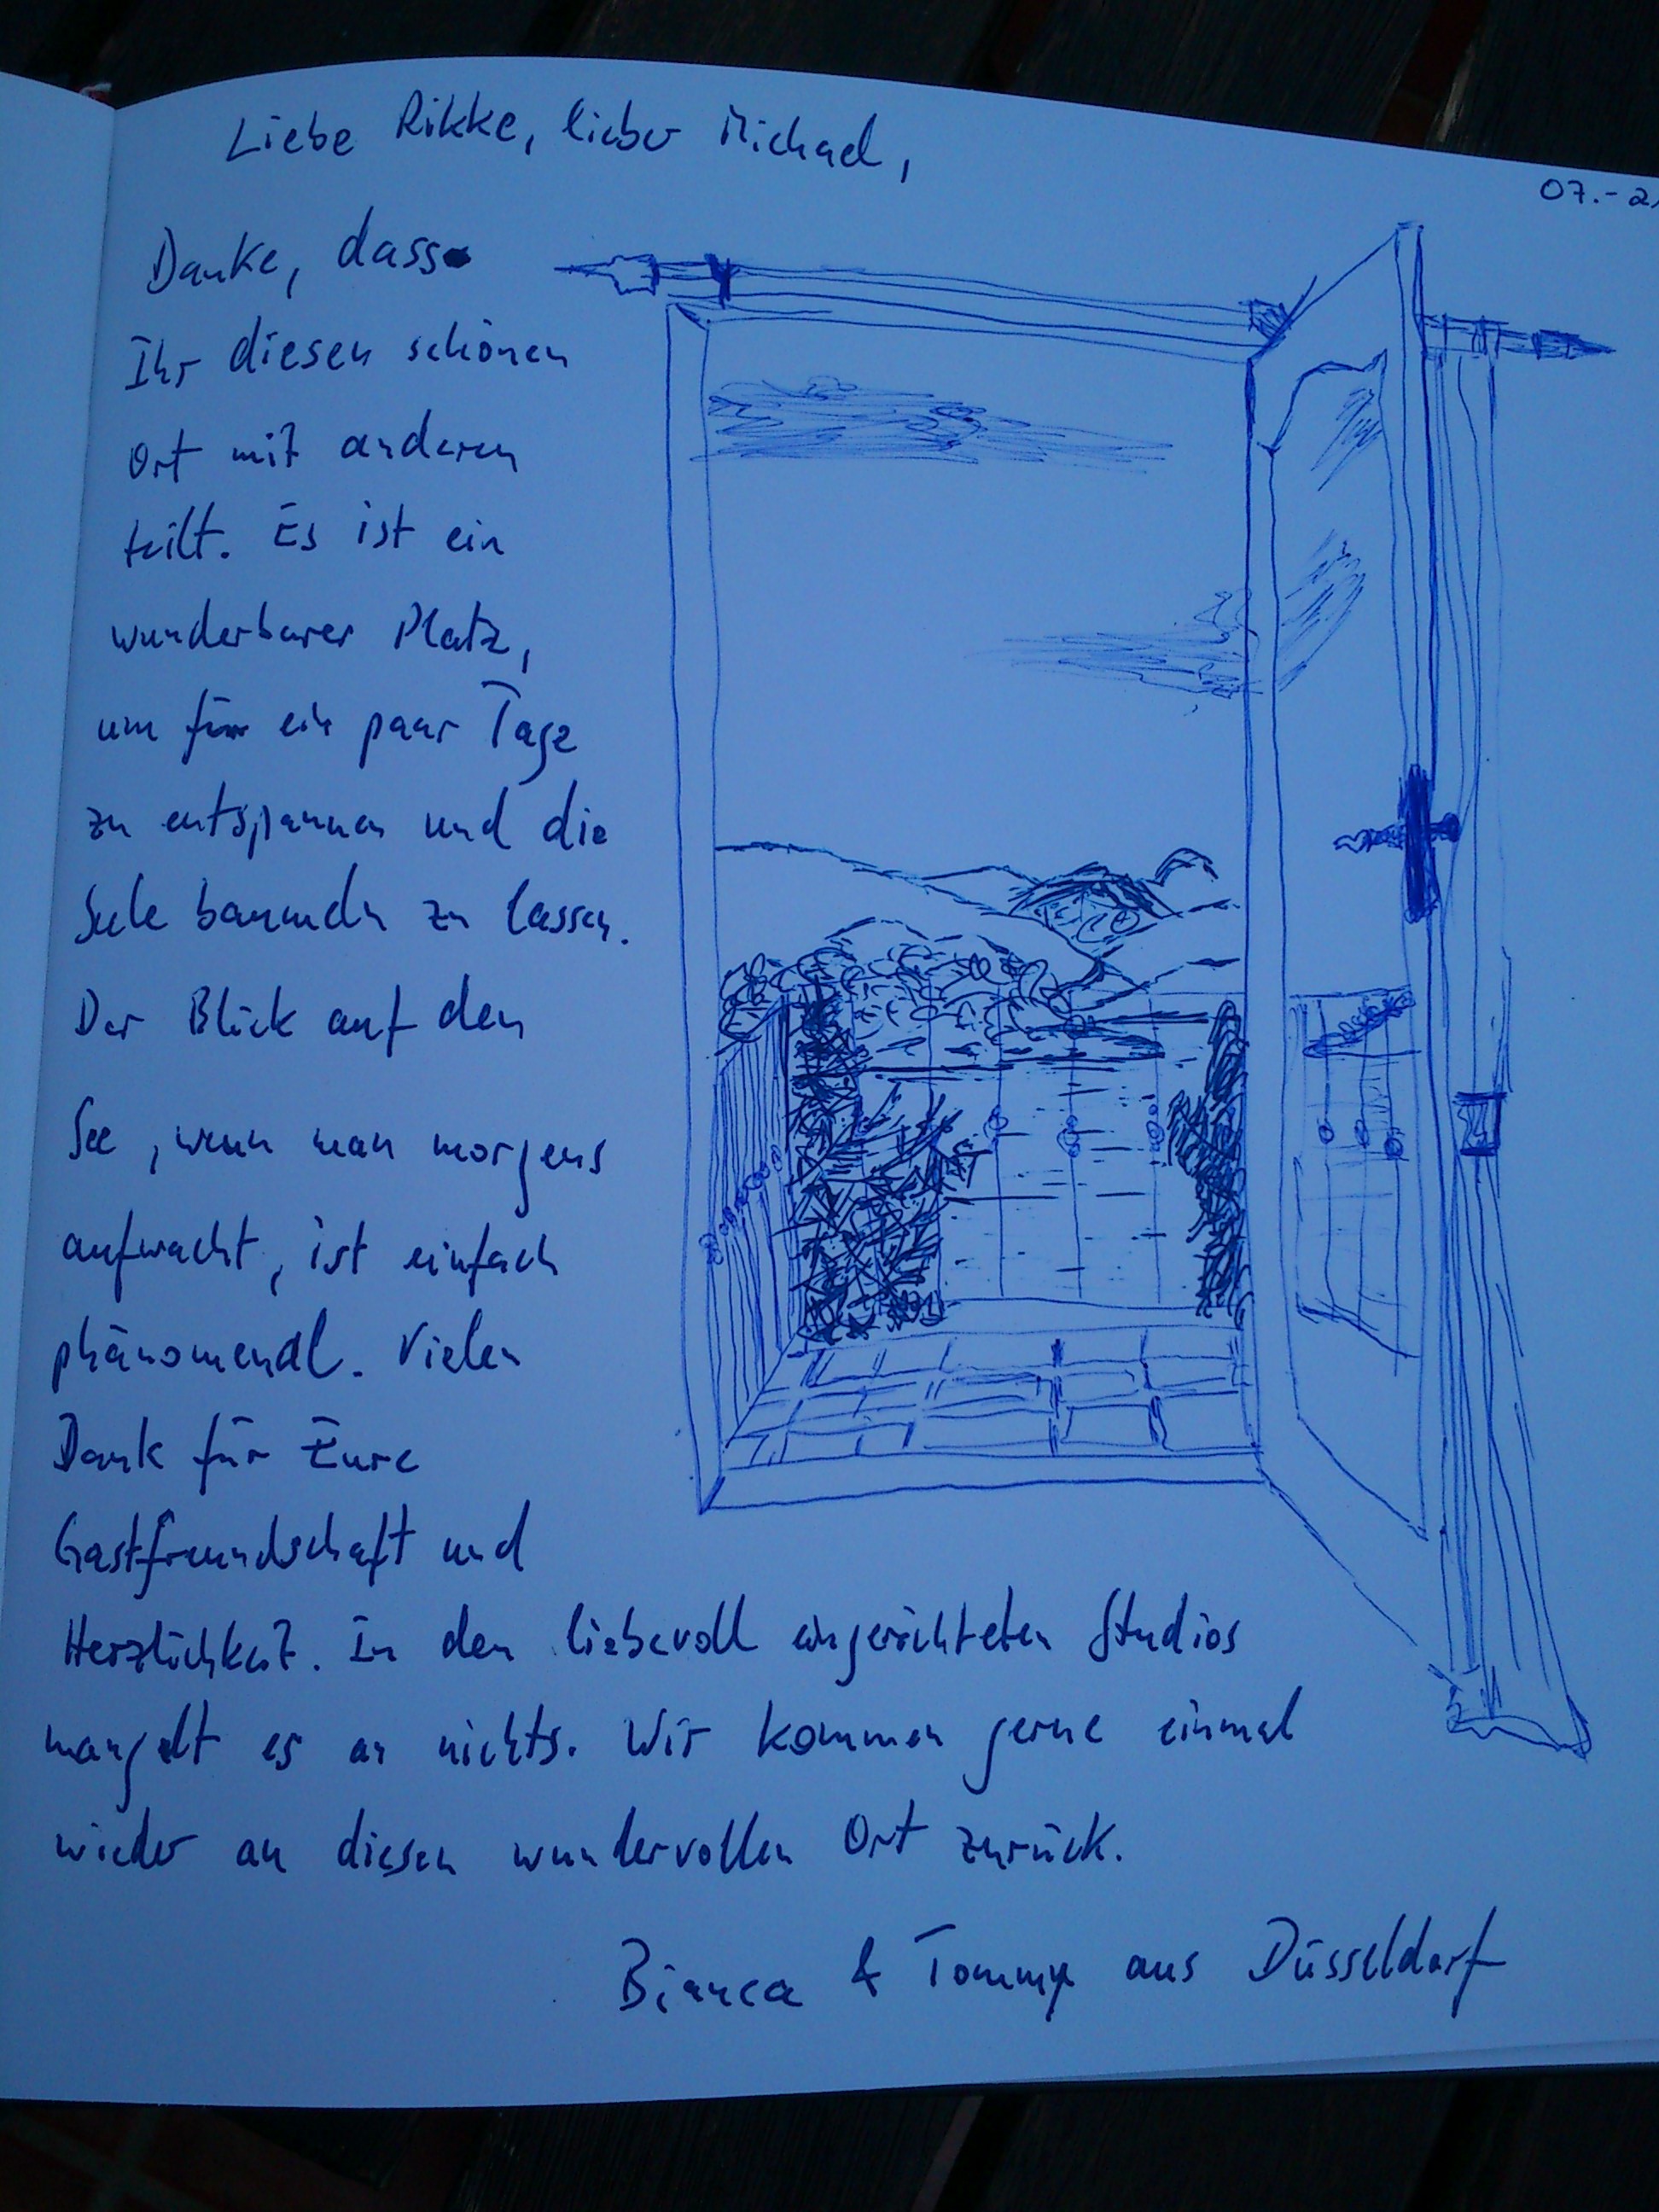 Liebe Rikke, lieber Michael,
07.-2
Danke, dass
Ihr diesen schönen
Ort mit anderen
teilt. Es ist ein
wunderbarer Platz,
um für ein paar Tage
zu entspannen und die
Seele baumeln zu lassen.
Der Blick auf den
See, wenn man morgens
aufwacht, ist einfach
phänomenal. Vielen
Dank für Eure
Gastfreundschaft und
Herzlichkeit. In den liebevoll eingerichteten Studios
mangelt es an nichts. Wir kommen gerne einmal
wieder an diesen wundervollen Ort zurück.
Bianca & Tommy aus Düsseldorf